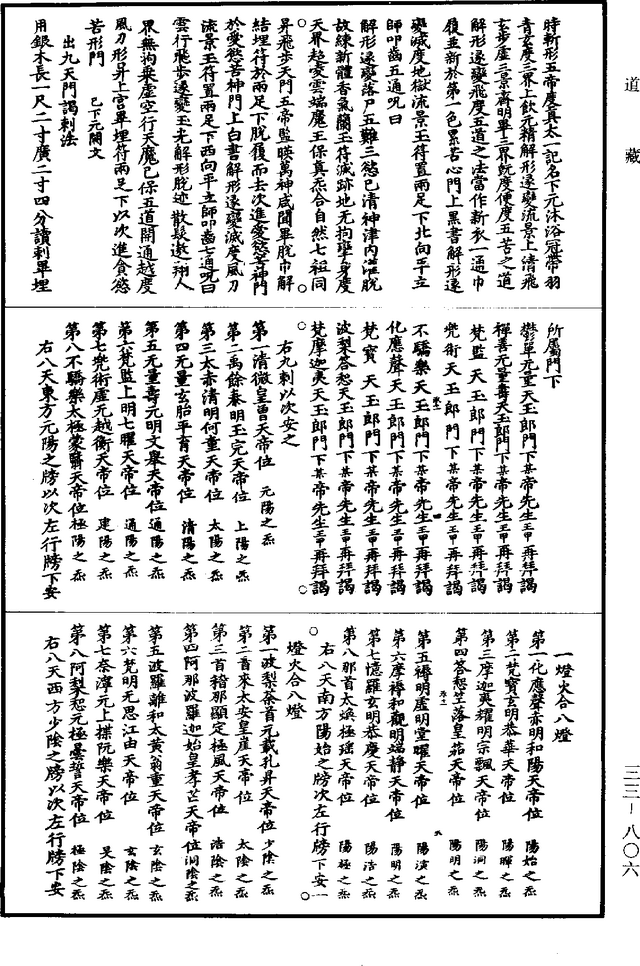 道藏
時斬形五帝度真太一記名下元沐浴冠帶羽
青玄度三界上飲元精解形遂變流景上清飛
玄步虛三景齋明畢三界既度便度五苦之道
解形遂變飛度五道之法當作新衣一通巾
履並新於第一色累苦心門上黑書解形遂
變滅度地獄流景玉符置兩足下北向平立
師叩齒五通呪曰
解形遂變落尸五難三慾已清神津內溢脫
故練新體香氣蘭玉符滅跡地无拘攣身度
天界超凌雲端魔王保真炁合自然七祖同
昇飛步天門五帝監暎萬神咸聞畢脫巾解
結埋符於兩足下脫履而去次進愛慾苦神門
於愛慾苦神門上白書解形遂變滅度風刀
流景玉符置兩足下西向平立師叩齒七通呪曰
雲行飛步遂變玉光解形脫迹散髮遨翔人
界無拘乘虛空行天魔已保五道開通越度
風刀形昇上宮畢埋符兩足下以次進貪慾
苦形門　已下元闕文
出九天門謁刺法
用銀木長一尺二寸廣二寸四分讀刺畢埋
所屬門下
鬱單无量天玉郎門下某帝先生王甲再拜謁
禪善无量壽天玉郎門下某帝先生王甲再拜謁
梵監天玉郎門下某帝先生王甲再拜謁
兜術天玉郎門下某帝先生王甲再拜謁
不驕樂天玉郎門下某帝先生王甲再拜謁
化應聲天玉郎門下某帝先生王甲再拜謁
梵寶天玉郎門下某帝先生王甲再拜謁
波梨答恕天玉郎門下某帝先生王甲再拜謁
梵摩迦夷天玉郎門下某帝先生王甲再拜謁
右九刺以次安之
第一清微皇曾天帝位　元陽之炁
第二禹餘秦明玉完天帝位　上陽之炁
第三太赤清明何童天帝位　太陽之炁
第四元量玄胎平育天帝位　清陽之炁
第五元量壽元明文舉天帝位　通陽之炁
第六梵監上明七曜天帝位　通陽之炁
第七兜術虛元越衡天帝位　建陽之炁
第八不驕樂太極蒙翳天帝位　極陽之炁
右八天東方元陽之牓以次左行牓下安
一燈火合八燈
第一化應聲赤明和陽天帝位　陽始之炁
第二梵寶玄明恭華天帝位　陽暉之炁
第三摩迦夷耀明宗飄天帝位　陽洞之炁
第四答恕竺落皇茄天帝位　陽明之炁
第五褥明虛明堂曜天帝位　陽演之炁
第六摩褥和觀明端靜天帝位　陽明之炁
第七憶羅玄明恭慶天帝位　陽浩之炁
第八那首太煥極瑤天帝位　陽極之炁
右八天南方陽始之牓以次左行牓下安一
燈火合八燈
第一波梨荼首元載孔昇天帝位　少陰之炁
第二音來太安皇崖天帝位　太陰之炁
第三首稽那顯定極風天帝位　浩陰之炁
第四阿那波羅迦始皇孝芒天帝位　洞陰之炁
第五波羅離和太黃翁重天帝位　玄陰之炁
第六梵明无思江由天帝位　玄陰之炁
第七奈淳元上揲阮樂天帝位　昊陰之炁
第八阿梨恕元極曇誓天帝位　極陰之炁
右八天西方少陰之牓以次左行牓下安
三三—八〇六